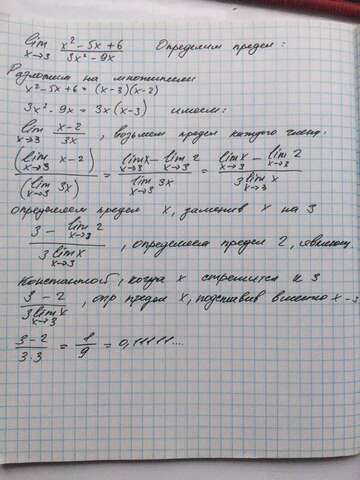 lim x→3 (x² - 5x + 6)/(3x² - 9x) Определим предел:
Разложим на множители
x² - 5x + 6 = (x-3)(x-2)
3x² - 9x = 3x(x-3) имеем:
lim x→3 (x-2)/(3x), возьмем предел каждого члена:
(lim x→3 x-2)/(lim x→3 3x) = (lim x→3 x - lim x→3 2)/(lim x→3 3x) = (lim x→3 x - lim x→3 2)/(3 lim x→3 x)
определяем предел x, заменив x на 3
(3 - lim x→3 2)/(3 lim x→3 x), определяем предел 2,
константой, когда x стремится к 3
(3-2)/(3 lim x→3 x), опр предел x, подставив вместо x - 3
(3-2)/(3·3) = 1/9 = 0,11111....